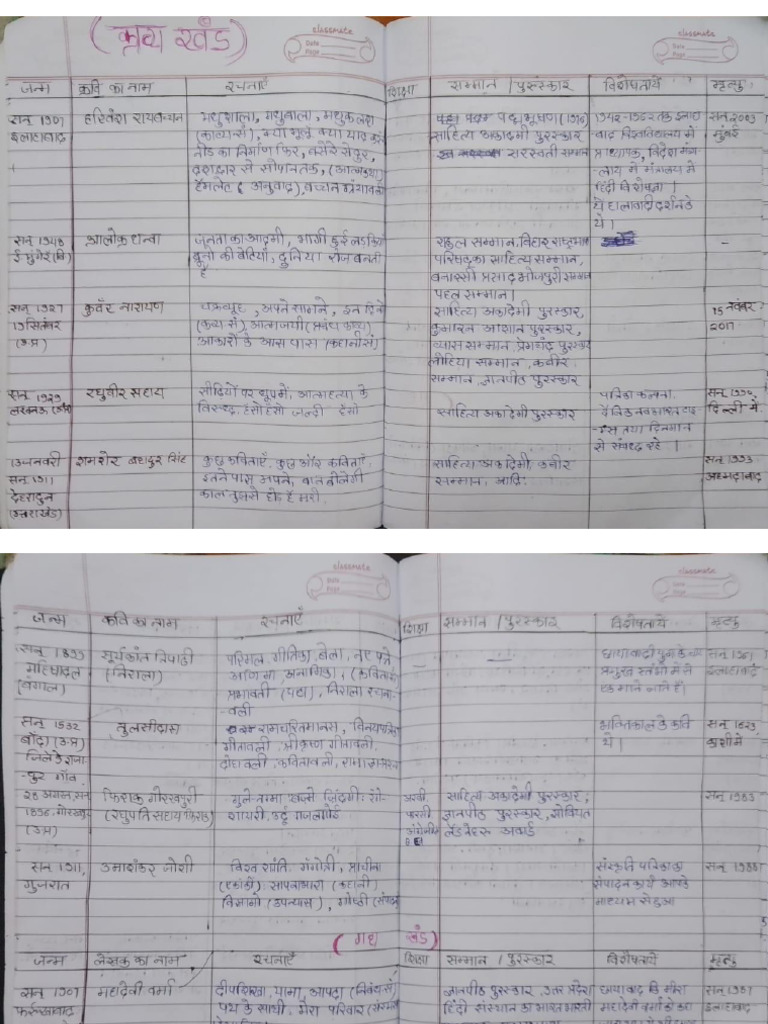 (काव्य खंड)
classmate
Date
Page
classmate
Date
Page
जन्म कवि का नाम रचनाएँ शिक्षा सम्मान /पुरस्कार विशेषतायें मृत्यु
सन् 1907 हरिवंश राय बच्चन मधुशाला, मधुबाला, मधुकलश पद्मभूषण (1976) 1942-1952 तक इलाहा सन् 2003
इलाहाबाद (काव्यसं), क्या भूलूँ क्या याद करूँ साहित्य अकादमी पुरस्कार बाद विश्वविद्यालय में मुंबई
नीड़ का निर्माण फिर, बसेरे से दूर, सरस्वती सम्मान प्राध्यापक, विदेश मंत्रा
दशद्वार से सोपान तक, (आत्मकथा) लाय में मंत्रालय में
हैमलेट (अनुवाद), बच्चन ग्रंथावली हिंदी विशेषज्ञ।
ये हालावादी दर्शन के
थे।
सन् 1948 आलोक धन्वा जनता का आदमी, भागी हुई लड़कियाँ राहुल सम्मान, बिहार राष्ट्रभाषा –
ई० मुंगेर (बि) ब्रूनो की बेटियाँ, दुनिया रोज बनती परिषद् का साहित्य सम्मान,
है बनारसी प्रसाद भोजपुरी सम्मान
पहल सम्मान।
सन् 1927 कुवँर नारायण चक्रव्यूह, अपने सामने, इन दिनों साहित्य अकादमी पुरस्कार, 15 नवंबर
19 सितंबर (काव्य सं) आत्मजयी (प्रबंध काव्य) कुमारन आशान पुरस्कार, 2017
(उ.प्र) आकारों के आस पास (कहानी सं) व्यास सम्मान, प्रेमचंद पुरस्कार
लोहिया सम्मान, कबीर
सम्मान, ज्ञानपीठ पुरस्कार
सन् 1929 रघुवीर सहाय सीढ़ियों पर धूप में, आत्महत्या के पत्रिका कल्पना, सन् 1990
लखनऊ (उ.प्र) विरुद्ध, हँसो हँसो जल्दी हँसो साहित्य अकादमी पुरस्कार दैनिक नवभारत टाइ दिल्ली में
-म्स तथा दिनमान
से संबद्ध रहे।
13 जनवरी शमशेर बहादुर सिंह कुछ कविताएँ, कुछ और कविताएँ, साहित्य अकादमी, कबीर सन् 1993
सन् 1911 इतने पास अपने, बात बोलेगी सम्मान, आदि। अहमदाबाद
देहरादून काल तुझसे होड़ है मेरी.
(उत्तराखंड)
classmate
Date
Page
classmate
Date
Page
जन्म कवि का नाम रचनाएँ शिक्षा सम्मान /पुरस्कार विशेषतायें मृत्यु
सन् 1899 सूर्यकांत त्रिपाठी परिमल, गीतिका, बेला, नए पत्ते – – छायावादी युग के चार सन् 1961
महिषादल (निराला) अणिमा अनामिका, (कविताएँ) प्रमुख स्तंभों में से इलाहाबाद
(बंगाल) प्रभावती (पद्य), निराला रचना- एक माने जाते हैं।
वली
सन् 1532 तुलसीदास रामचरितमानस, विनयपत्रिका भक्तिकाल के कवि सन् 1623
बाँदा (उ.प्र) गीतावली, श्रीकृष्ण गीतावली, थे। काशी में
जिले के राजा दोहावली, कवितावली,
-पुर गाँव.
28 अगस्त, सन् फिराक गोरखपुरी गुले-नग्मा बज्मे जिंदगी: रंगे- अरबी, साहित्य अकादमी पुरस्कार, सन् 1983
1896, गोरखपुर (रघुपति सहाय फिराक) शायरी, उर्दू गजलगोई फारसी ज्ञानपीठ पुरस्कार, सोवियत
(उ.प्र) अंग्रेजी में लैंड नेहरू अवार्ड
सन् 1911, उमाशंकर जोशी विश्व शांति, गंगोत्री, प्राचीना संस्कृति पत्रिका का सन् 1988
गुजरात (एकांकी) सापनाभारा (कहानी) संपादन कार्य आपके
विसामो (उपन्यास), गोष्ठी माध्यम से हुआ
(गद्य खंड)
जन्म लेखक का नाम रचनाएँ शिक्षा सम्मान /पुरस्कार विशेषतायें मृत्यु
सन् 1907 महादेवी वर्मा दीपशिखा, यामा, आपदा (निबंध सं) ज्ञानपीठ पुरस्कार, उत्तर प्रदेश छायावाद कि मीरा सन् 1987
फर्रुखाबाद पथ के साथी, मेरा परिवार (संस्मरण हिंदी संस्थान का भारत भारती महादेवी वर्मा को कहा इलाहाबाद